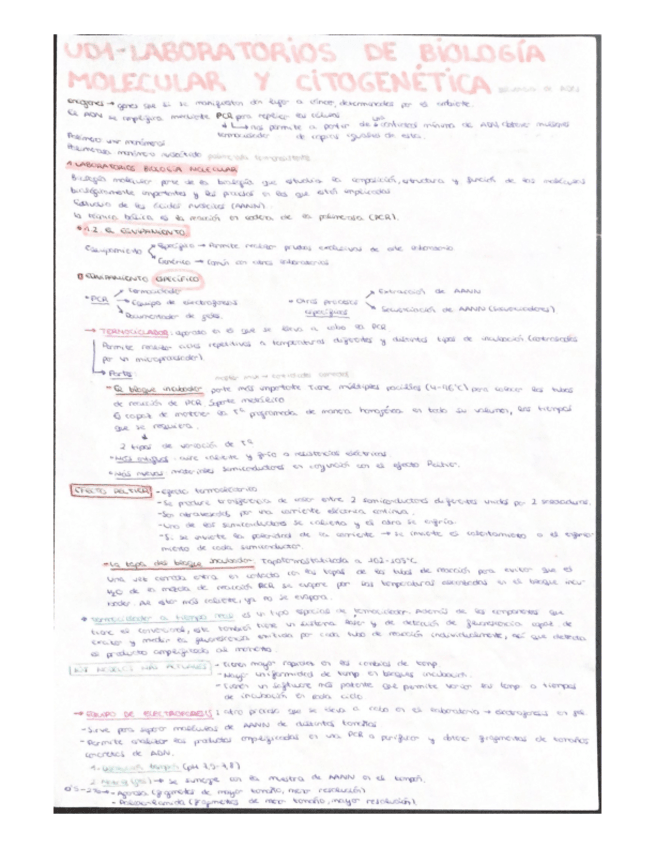 UD1-LABORATORIOS DE BIOLOGÍA
MOLECULAR Y CITOGENÉTICA
El ADN se amplifica mediante PCR para replicar
nos permite a partir de cantidad mínima de ADN obtener múltiples
termociclador de copias iguales de este.
1. LABORATORIOS BIOLOGÍA MOLECULAR
Biología molecular parte de la biología que estudia la composición, estructura y función de las moléculas
biológicamente importantes y los procesos en los que están implicadas
Estudio de los Ácidos Nucleicos (AANN).
La técnica básica es la reacción en cadena de la polimerasa (PCR).
1.2. EL EQUIPAMIENTO
Equipamiento Específico → Permite realizar pruebas exclusivas de este laboratorio
Genérico → Común con otros laboratorios
EQUIPAMIENTO ESPECÍFICO
Termociclador
• PCR → Equipo de electroforesis
Documentador de geles
• Otros procesos específicos
Extracción de AANN
Secuenciación de AANN (Secuenciadores)
→ TERMOCICLADOR: aparato en el que se lleva a cabo la PCR
Permite realizar ciclos repetitivos a temperaturas diferentes y distintos tipos de incubación (controlados
por un microprocesador).
Partes:
- El bloque incubador: parte más importante. Tiene múltiples pocillos para colocar los tubos
de reacción de PCR. Soporte metálico
Es capaz de mantener la Tª programada de manera homogénea en todo su volumen, los tiempos
que se requiera.
2 tipos de variación de Tª
• Más antiguos: aire caliente y frío o resistencias eléctricas.
• Más nuevos: materiales semiconductores en conjunción con el efecto Peltier.
EFECTO PELTIER - efecto termoeléctrico
- Se produce transferencia de calor entre 2 semiconductores diferentes unidos por 2
- Son atravesados por una corriente eléctrica continua.
- Uno de los semiconductores se calienta y el otro se enfría.
- Si se invierte la polaridad de la corriente → se invierte el calentamiento o el enfria-
miento de cada semiconductor.
• La tapa del bloque incubador: Tapa termostatizada a 102-105ºC
Una vez cerrada entra en contacto con las tapas de los tubos de reacción para evitar que el
H₂O de la mezcla de reacción PCR se evapore por las temperaturas alcanzadas en el bloque incu-
bador. Al estar más caliente, ya no se evapora.
• Termociclador a tiempo real: es un tipo especial de termociclador. Además de los componentes que
tiene el convencional, este también tiene un sistema láser y de detección de fluorescencia capaz de
excitar y medir la fluorescencia emitida por cada tubo de reacción individualmente, así que detecta
el producto amplificado al momento.
LOS MODELOS MÁS ACTUALES - Tienen mayor rapidez en los cambios de temp.
- Mayor uniformidad de temp. en bloques incubación.
- Tienen un software más potente que permite variar la temp. o tiempos
de incubación en cada ciclo
→ EQUIPO DE ELECTROFORESIS: otro proceso que se lleva a cabo en el laboratorio → electroforesis en gel.
- Sirve para separar moléculas de AANN de distintos tamaños
- Permite analizar los productos amplificados en una PCR o purificar y obtener fragmentos de tamaños
concretos de ADN.
2. → se sumerge con la muestra de AANN en el tampón.
- Agarosa (fragmentos de mayor tamaño, menor resolución)
- Poliacrilamida (fragmentos de menor tamaño, mayor resolución)